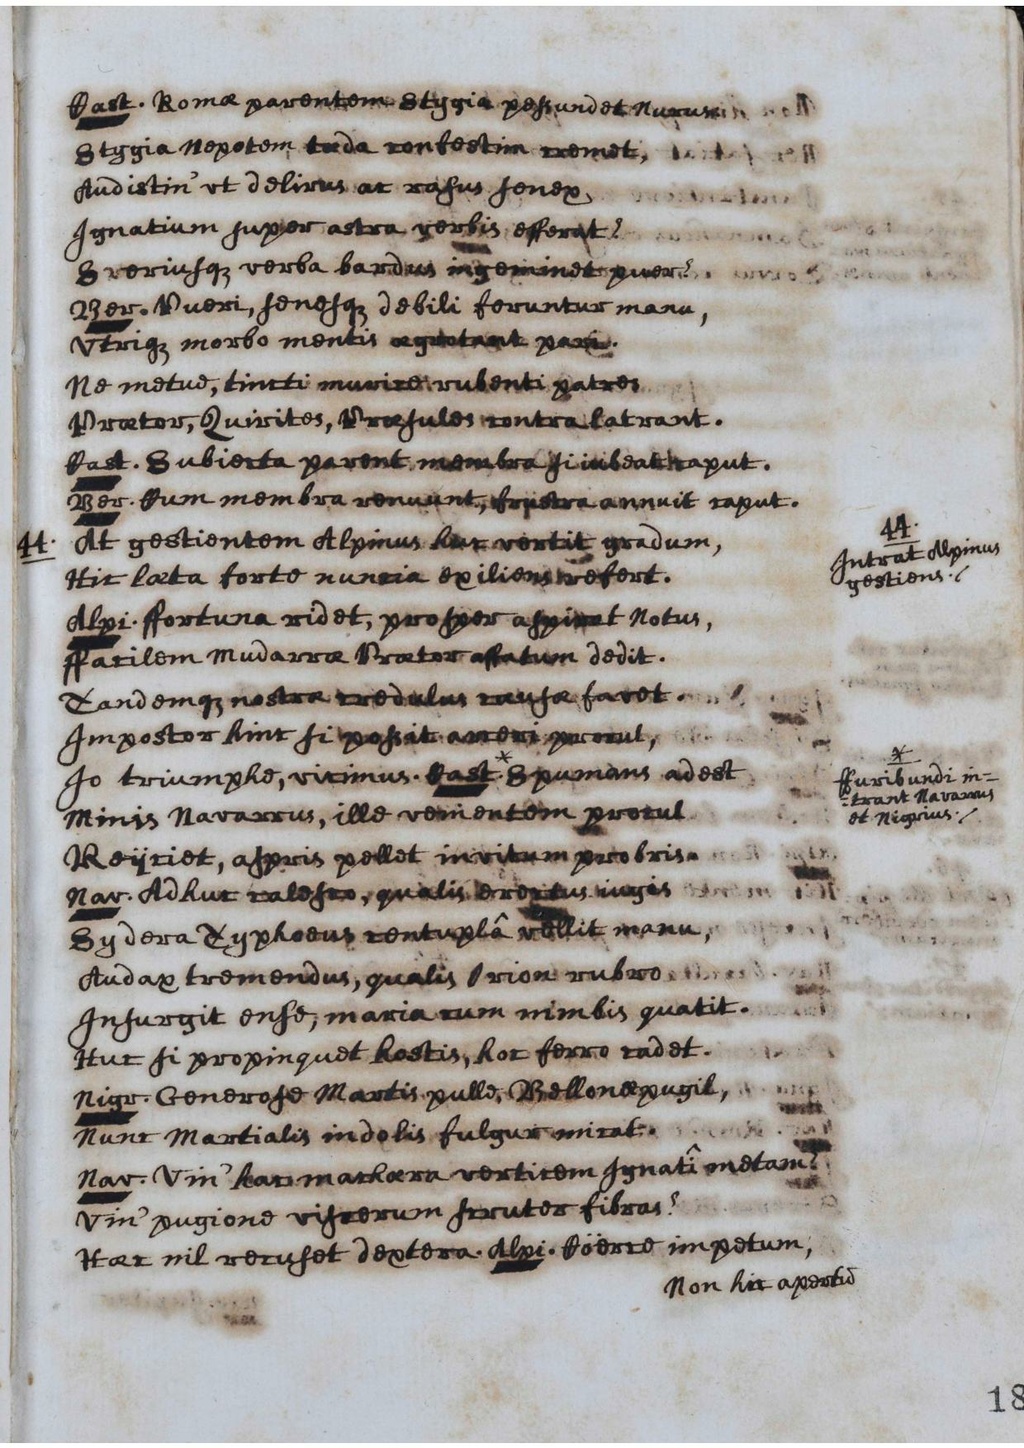 Cast. Romæ parentem Stygia pessundet Nurus
Stygia Nepotem tæda confestim cremet,
Audistin' vt delirus ac rasus senex
Ignatium super astra verbis efferat?
Sueriusq; verba bardus ingeminet puer?
Ver. Pueri, senesq; debili feruntur manu,
Vtriq; morbo mentis ægrotant pari.
Ne metue, tincti murice rubenti patres
Prætor, Quirites, Præsules contra latrant.
Cast. Subiecta parent membra si iubeat caput.
Ver. Cum membra renuunt, frustra annuit caput.
44. At gestientem Alpinus huc vertit gradum,
Hic læta forte nuncia exiliens refert.
44.
Intrat Alpinus
gestiens./
Alpi. Ffortuna ridet, prosper aspirat Notus,
Ffacilem Mudarræ Prætor affatum dedit.
Tandemq; nostræ credulus causæ favet.
Impostor hinc si possit arceri procul,
Io triumphe, vicimus. Cast.* Spumans adest
Minis Navarrus, ille vementem procul
Reijciet, aspris pellet invitum probris.
*
Ffuribundi in=
=trant Navarrus
et Nigrius./
Nav. Adhuc calesco, qualis erectus iugis
Sydera Typhoeus centuplâ vellit manu,
Audax tremendus, qualis Orion rubro
Insurgit ense, maria cum nimbis quatit.
Huc si propinquet hostis, hoc ferro cadet.
Nigr. Generose Martis pulle, Bellonæ pugil,
Nunc Martialis indolis fulgur micat.
Nav. Vin' hac machæra verticem Ignatî metam?
Vin' pugione viscerum scruter fibras?
Hæc nil recuset dextera. Alpi. Cöerce impetum,
Non hic aperto
18